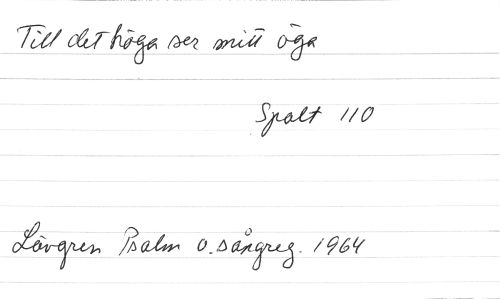 Till det höga ser mitt öga
Spalt 110
Lövgren Psalm o. sångreg. 1964